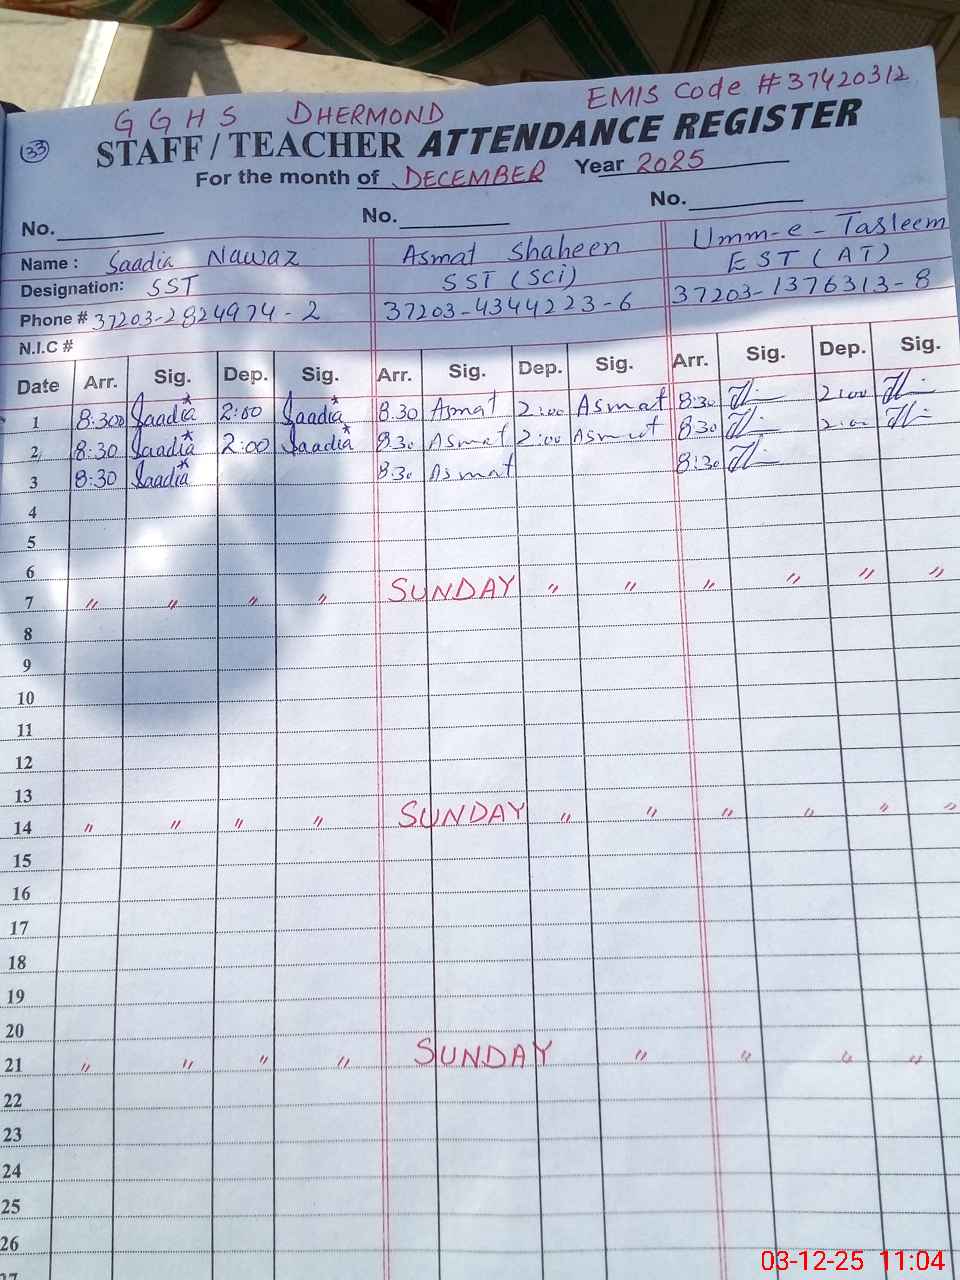 GGHS DHERMOND EMIS Code # 37420312
33 STAFF / TEACHER ATTENDANCE REGISTER
For the month of DECEMBER Year 2025
No. No. No.
Name : Saadia Nawaz Asmat Shaheen Umm-e-Tasleem
Designation: SST SST (Sci) EST (AT)
Phone # 37203-2824974-2 37203-4344223-6 37203-1376313-8
N.I.C #
Date Arr. Sig. Dep. Sig. Arr. Sig. Dep. Sig. Arr. Sig. Dep. Sig.
1 8:30 Saadia* 2:00 Saadia* 8.30 Asmat 2:00 Asmat 8:30 2:00
2 8:30 Saadia* 2:00 Saadia* 8.30 Asmat 2:00 Asmat 8:30 2:00
3 8:30 Saadia* 8:30 Asmat 8:30
4
5
6
7 " " " " SUNDAY " " " " " "
8
9
10
11
12
13
14 " " " " SUNDAY " " " " " "
15
16
17
18
19
20
21 " " " " SUNDAY " " " "
22
23
24
25
26
27
03-12-25 11:04